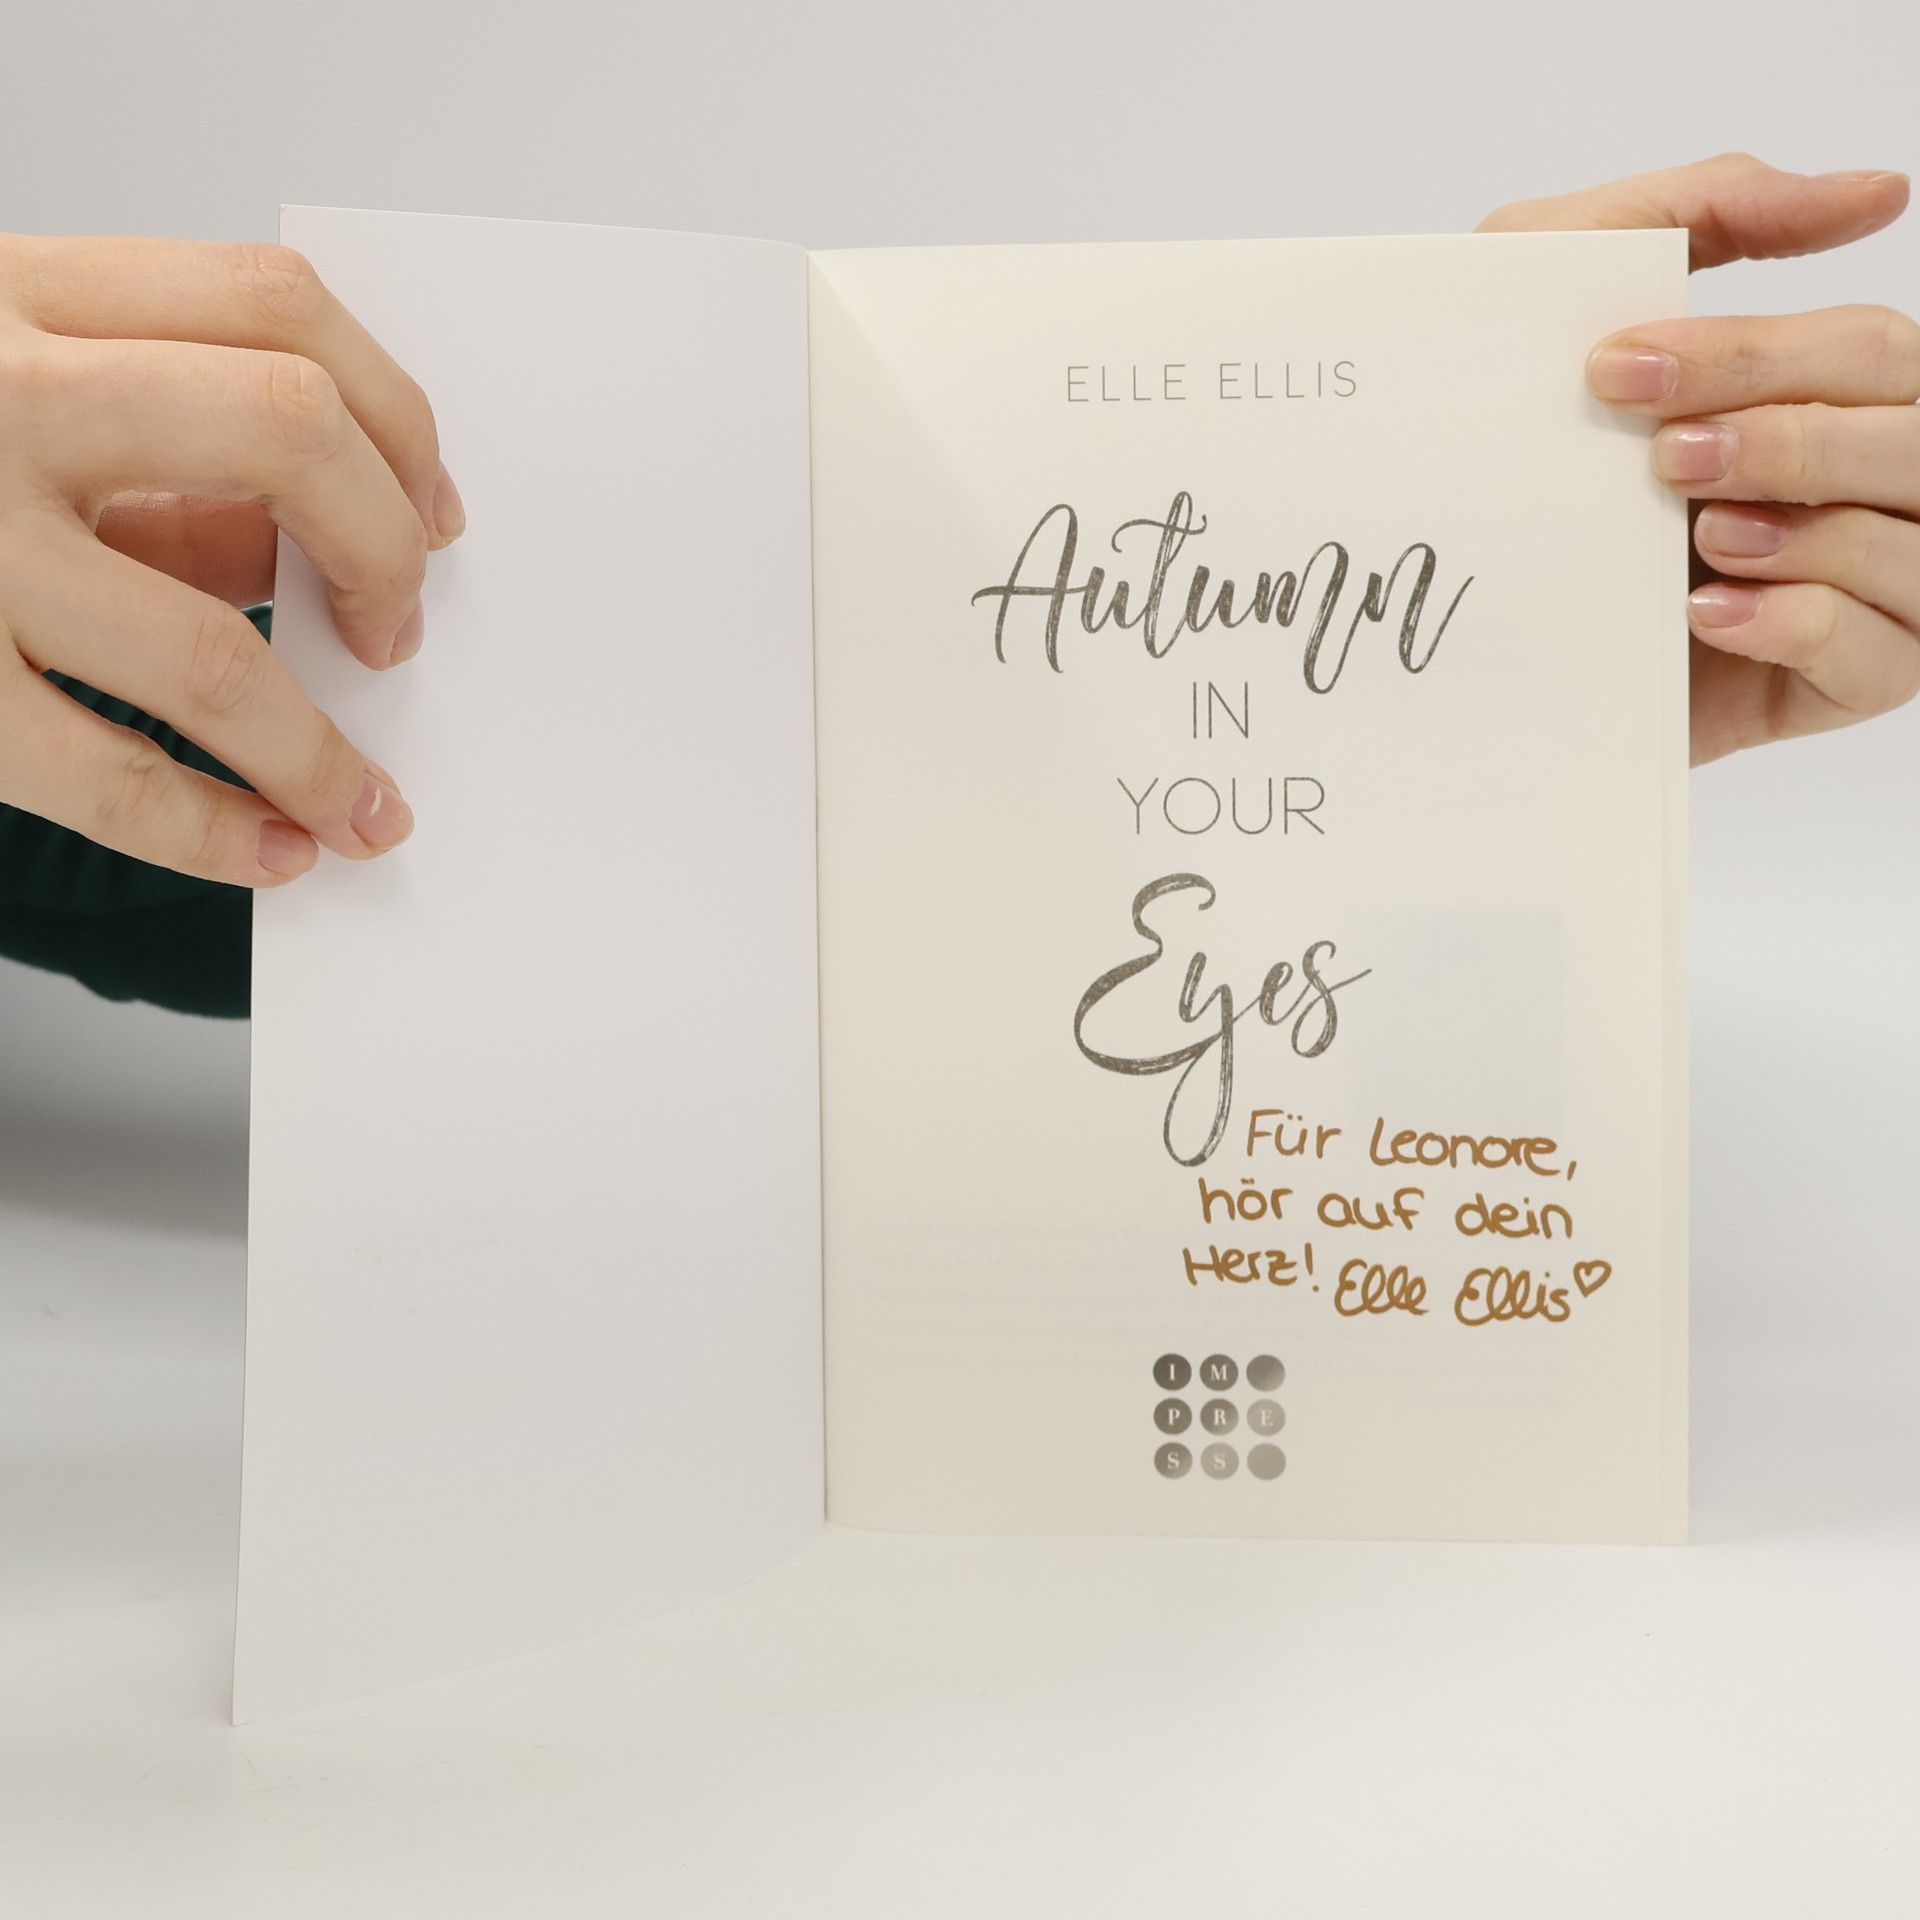 ELLE ELLIS
Autumn
IN
YOUR
Eyes
Für Leonore,
hör auf dein
Herz! Elle Ellis♡
I M
P R E
S S